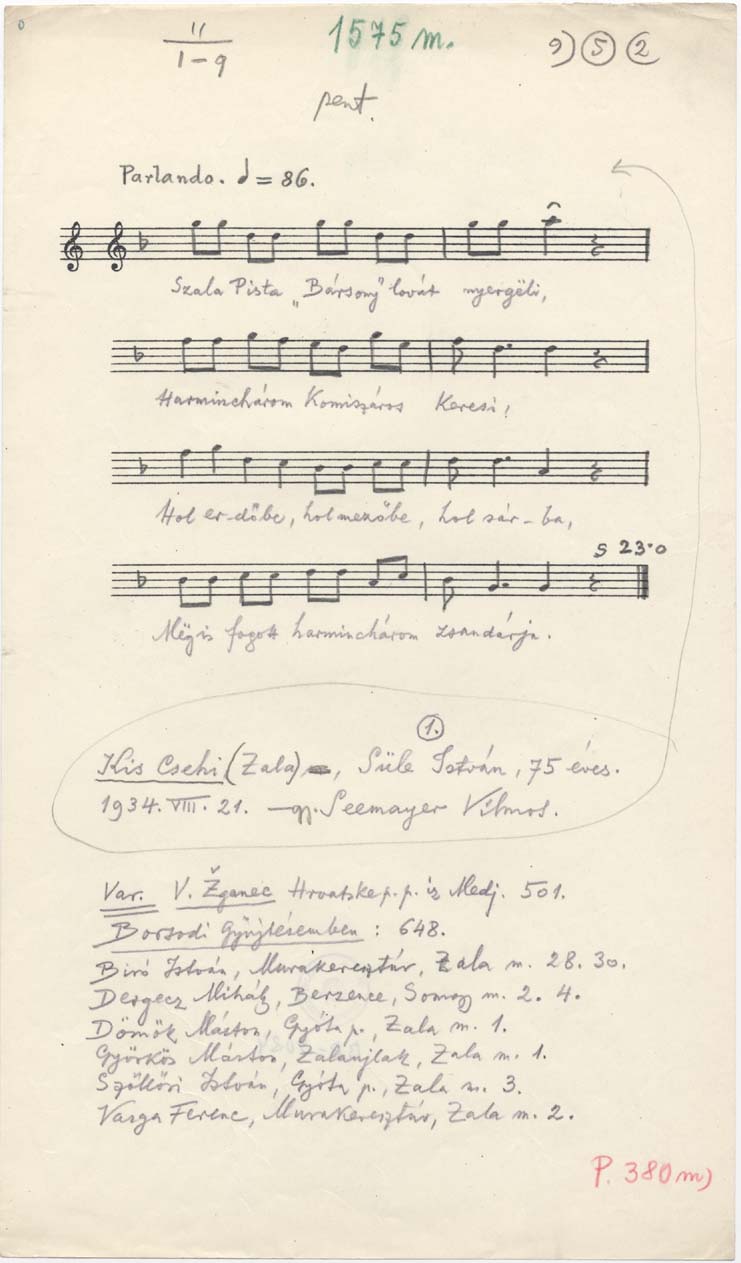 11
1-9
1575 m.
9) 5 2
pent.
Parlando. = 86.
Szala Pista „Bársony" lovát nyergëli,
Harminchárom Komiszáros Keresi,
Hol er-dőbe, hol mezőbe, hol sár-ba,
S 23·0
Mégis fogott harminchárom zsandárja.
1.
Kis Csehi (Zala), Süle István, 75 éves.
1934. VIII. 21. — gy. Seemayer Vilmos.
Var. V. Žganec Hrvatske p. p. iz Medj. 501.
Borsodi Gyűjtésemben : 648.
Biró István, Murakeresztúr, Zala m. 28. 30.
Dergecz Mihály, Berzence, Somogy m. 2. 4.
Dömök Márton, Gyóta p., Zala m. 1.
Györkös Márton, Zalaujlak, Zala m. 1.
Szöllősi István, Gyóta p., Zala m. 3.
Varga Ferenc, Murakeresztúr, Zala m. 2.
P. 380 m)